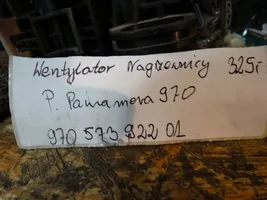 Wentylator Nagrzewnicy 325,-
P. Panamera 970
970 573 922 01